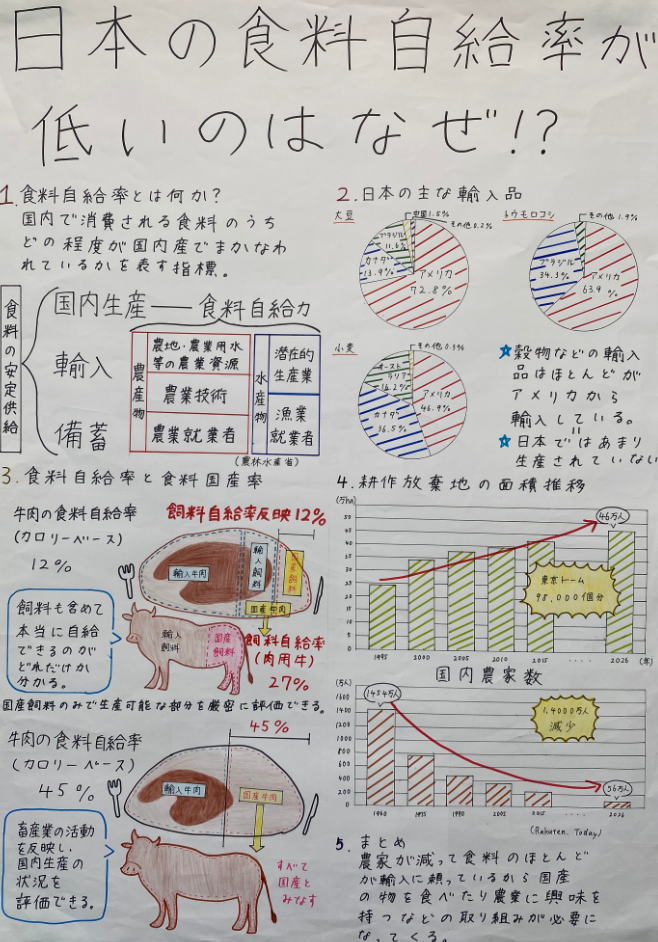 日本の食料自給率が
低いのはなぜ!?
1.食料自給率とは何か?
国内で消費される食料のうち
どの程度が国内産でまかなわ
れているかを表す指標。
食料の安定供給
国内生産 — 食料自給力
輸入
備蓄
農産物
農地・農業用水
等の農業資源
農業技術
農業就業者
水産物
潜在的
生産業
漁業
就業者
(農林水産省)
2.日本の主な輸入品
大豆
中国1.5%
その他0.2%
ブラジル
11.6%
カナダ
13.9%
アメリカ
72.8%
トウモロコシ
その他1.9%
ブラジル
34.3%
アメリカ
63.9%
小麦
その他0.5%
オースト
ラリア
16.2%
カナダ
36.5%
アメリカ
46.9%
穀物などの輸入
品はほとんどが
アメリカから
輸入している。
日本ではあまり
生産されていない
3.食料自給率と食料国産率
牛肉の食料自給率
(カロリーベース)
12%
飼料自給率反映12%
輸入牛肉
輸入飼料
国産飼料
国産牛肉
飼料も含めて
本当に自給
できるのが
どれだけか
分かる。
輸入
飼料
国産
飼料
飼料自給率
(肉用牛)
27%
国産飼料のみで生産可能な部分を厳密に評価できる。
牛肉の食料自給率
(カロリーベース)
45%
45%
輸入牛肉
国産牛肉
畜産業の活動
を反映し、
国内生産の
状況を
評価できる。
すべて
国産と
みなす
4.耕作放棄地の面積推移
(万ha)
46万人
東京ドーム
98,000個分
1995
2000
2005
2010
2015
....
2026
(年)
国内農家数
(万人)
1600
1400
1200
1000
800
600
400
200
0
1454万人
1,4000万人
減少
56万人
1960
....
2026
(Rakuten. Today)
5.まとめ
農家が減って食料のほとんど
が輸入に頼っているから国産
の物を食べたり農業に興味を
持つなどの取り組みが必要に
なってくる。